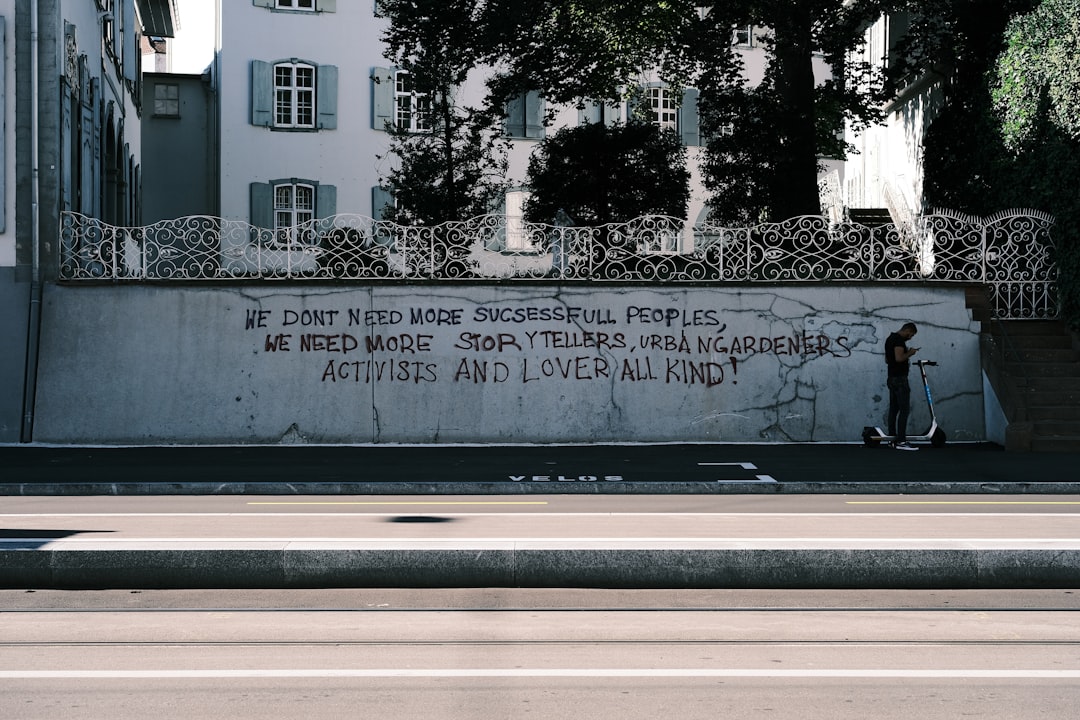 WE DONT NEED MORE SUCSESSFULL PEOPLES,
WE NEED MORE STORYTELLERS, URBANGARDENERS
ACTIVISTS AND LOVER ALL KIND!
VELOS